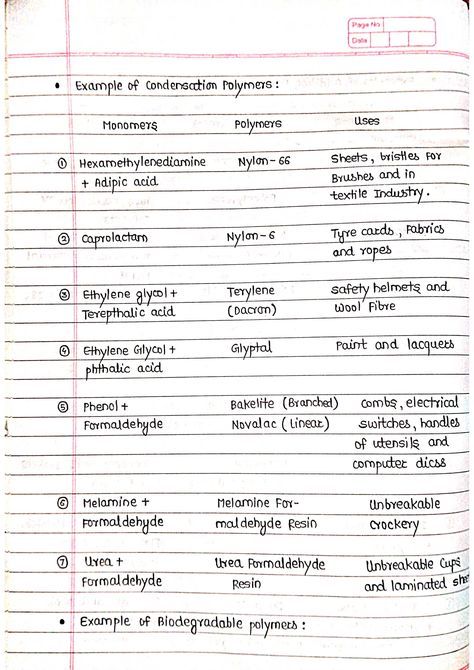 Page No
Date
• Example of Condensation Polymers :
Monomers Polymers Uses
① Hexamethylenediamine Nylon-66 Sheets, bristles For
+ Adipic acid Brushes and in
textile Industry.
② Caprolactam Nylon-6 Tyre cards, Fabrics
and ropes
③ Ethylene glycol + Terylene safety helmets and
Terepthalic acid (Dacron) Wool Fibre
④ Ethylene Glycol + Glyptal Paint and lacquers
phthalic acid
⑤ Phenol + Bakelite (Branched) combs, electrical
Formaldehyde Novalac (Linear) switches, handles
of utensils and
computer dicss
⑥ Melamine + Melamine For- Unbreakable
Formaldehyde maldehyde Resin Crockery
⑦ Urea + Urea Formaldehyde Unbreakable Cups
Formaldehyde Resin and laminated
• Example of Biodegradable polymers :